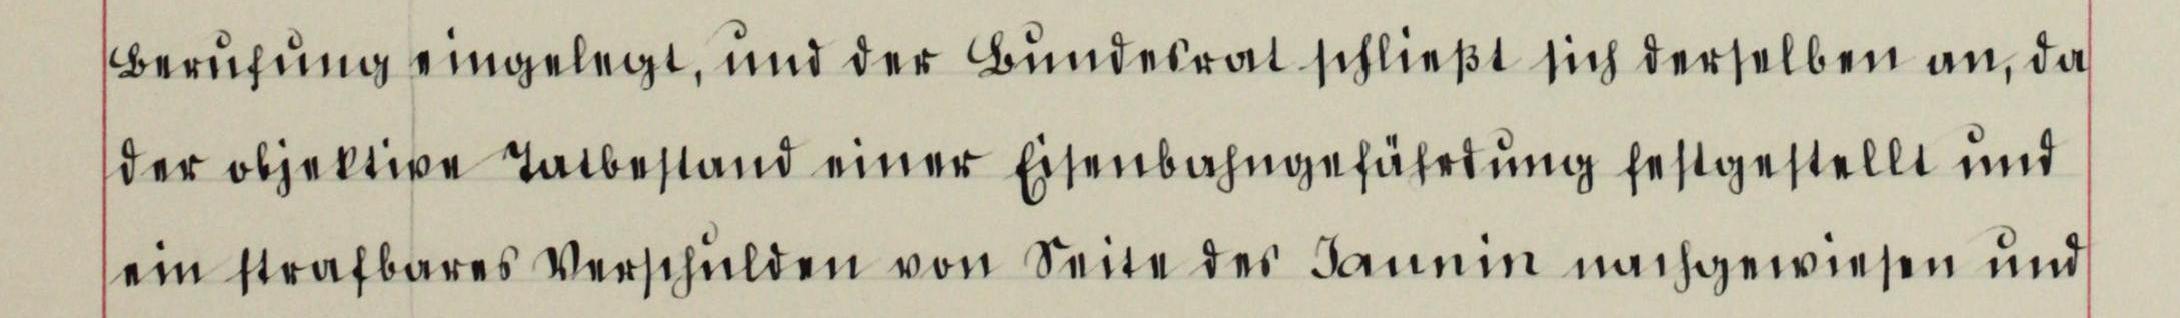 Berufung eingelegt, und der Bundesrat schließt sich derselben an, da
der objektive Tatbestand einer Eisenbahngefährdung festgestellt und
ein strafbares Verschulden von Seite des Jaunin nachgewiesen und